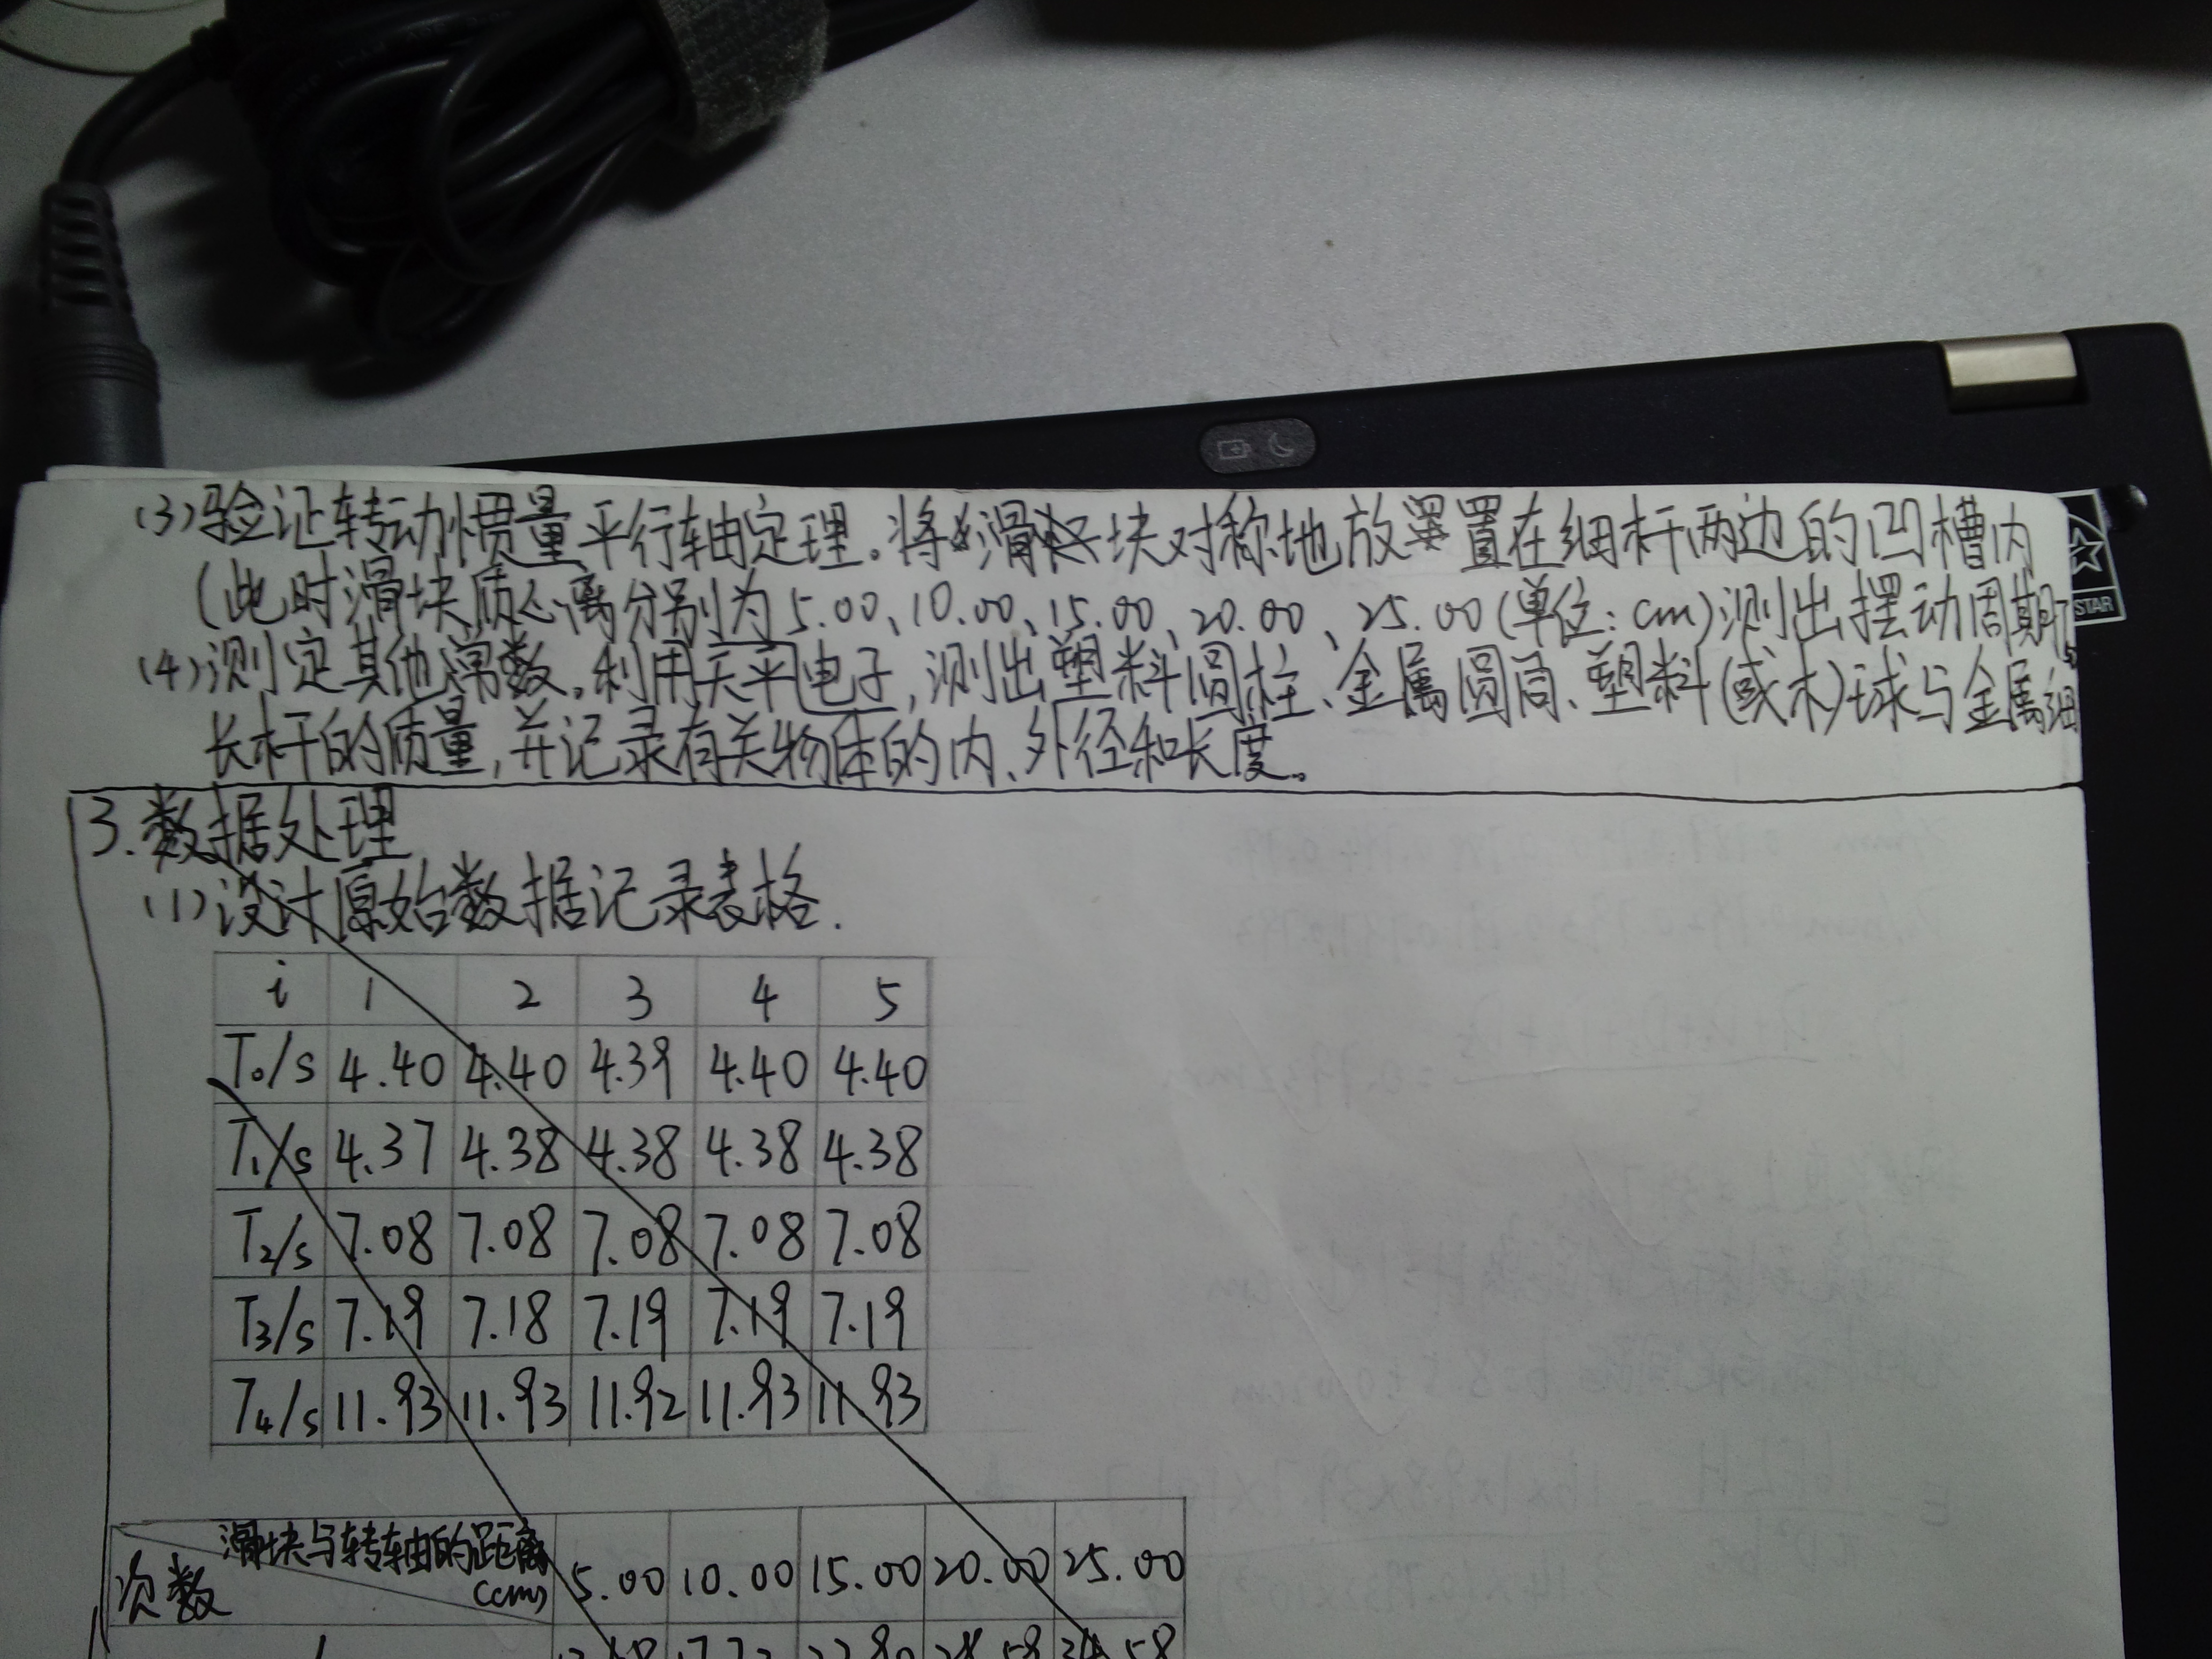 (3)验证转动惯量平行轴定理。将滑块对称地放置在细杆两边的凹槽内
(此时滑块质心离分别为5.00、10.00、15.00、20.00、25.00(单位:cm)测出摆动周期T5
(4)测定其他常数。利用天平电子,测出塑料圆柱、金属圆筒、塑料(或木)球与金属细
长杆的质量,并记录有关物体的内、外径和长度。
STAR
3.数据处理
(1)设计原始数据记录表格.
i 1 2 3 4 5
T0/s 4.40 4.40 4.39 4.40 4.40
T1/s 4.37 4.38 4.38 4.38 4.38
T2/s 7.08 7.08 7.08 7.08 7.08
T3/s 7.19 7.18 7.19 7.19 7.19
T4/s 11.93 11.93 11.92 11.93 11.93
滑块与转轴的距离(cm) 5.00 10.00 15.00 20.00 25.00
次数